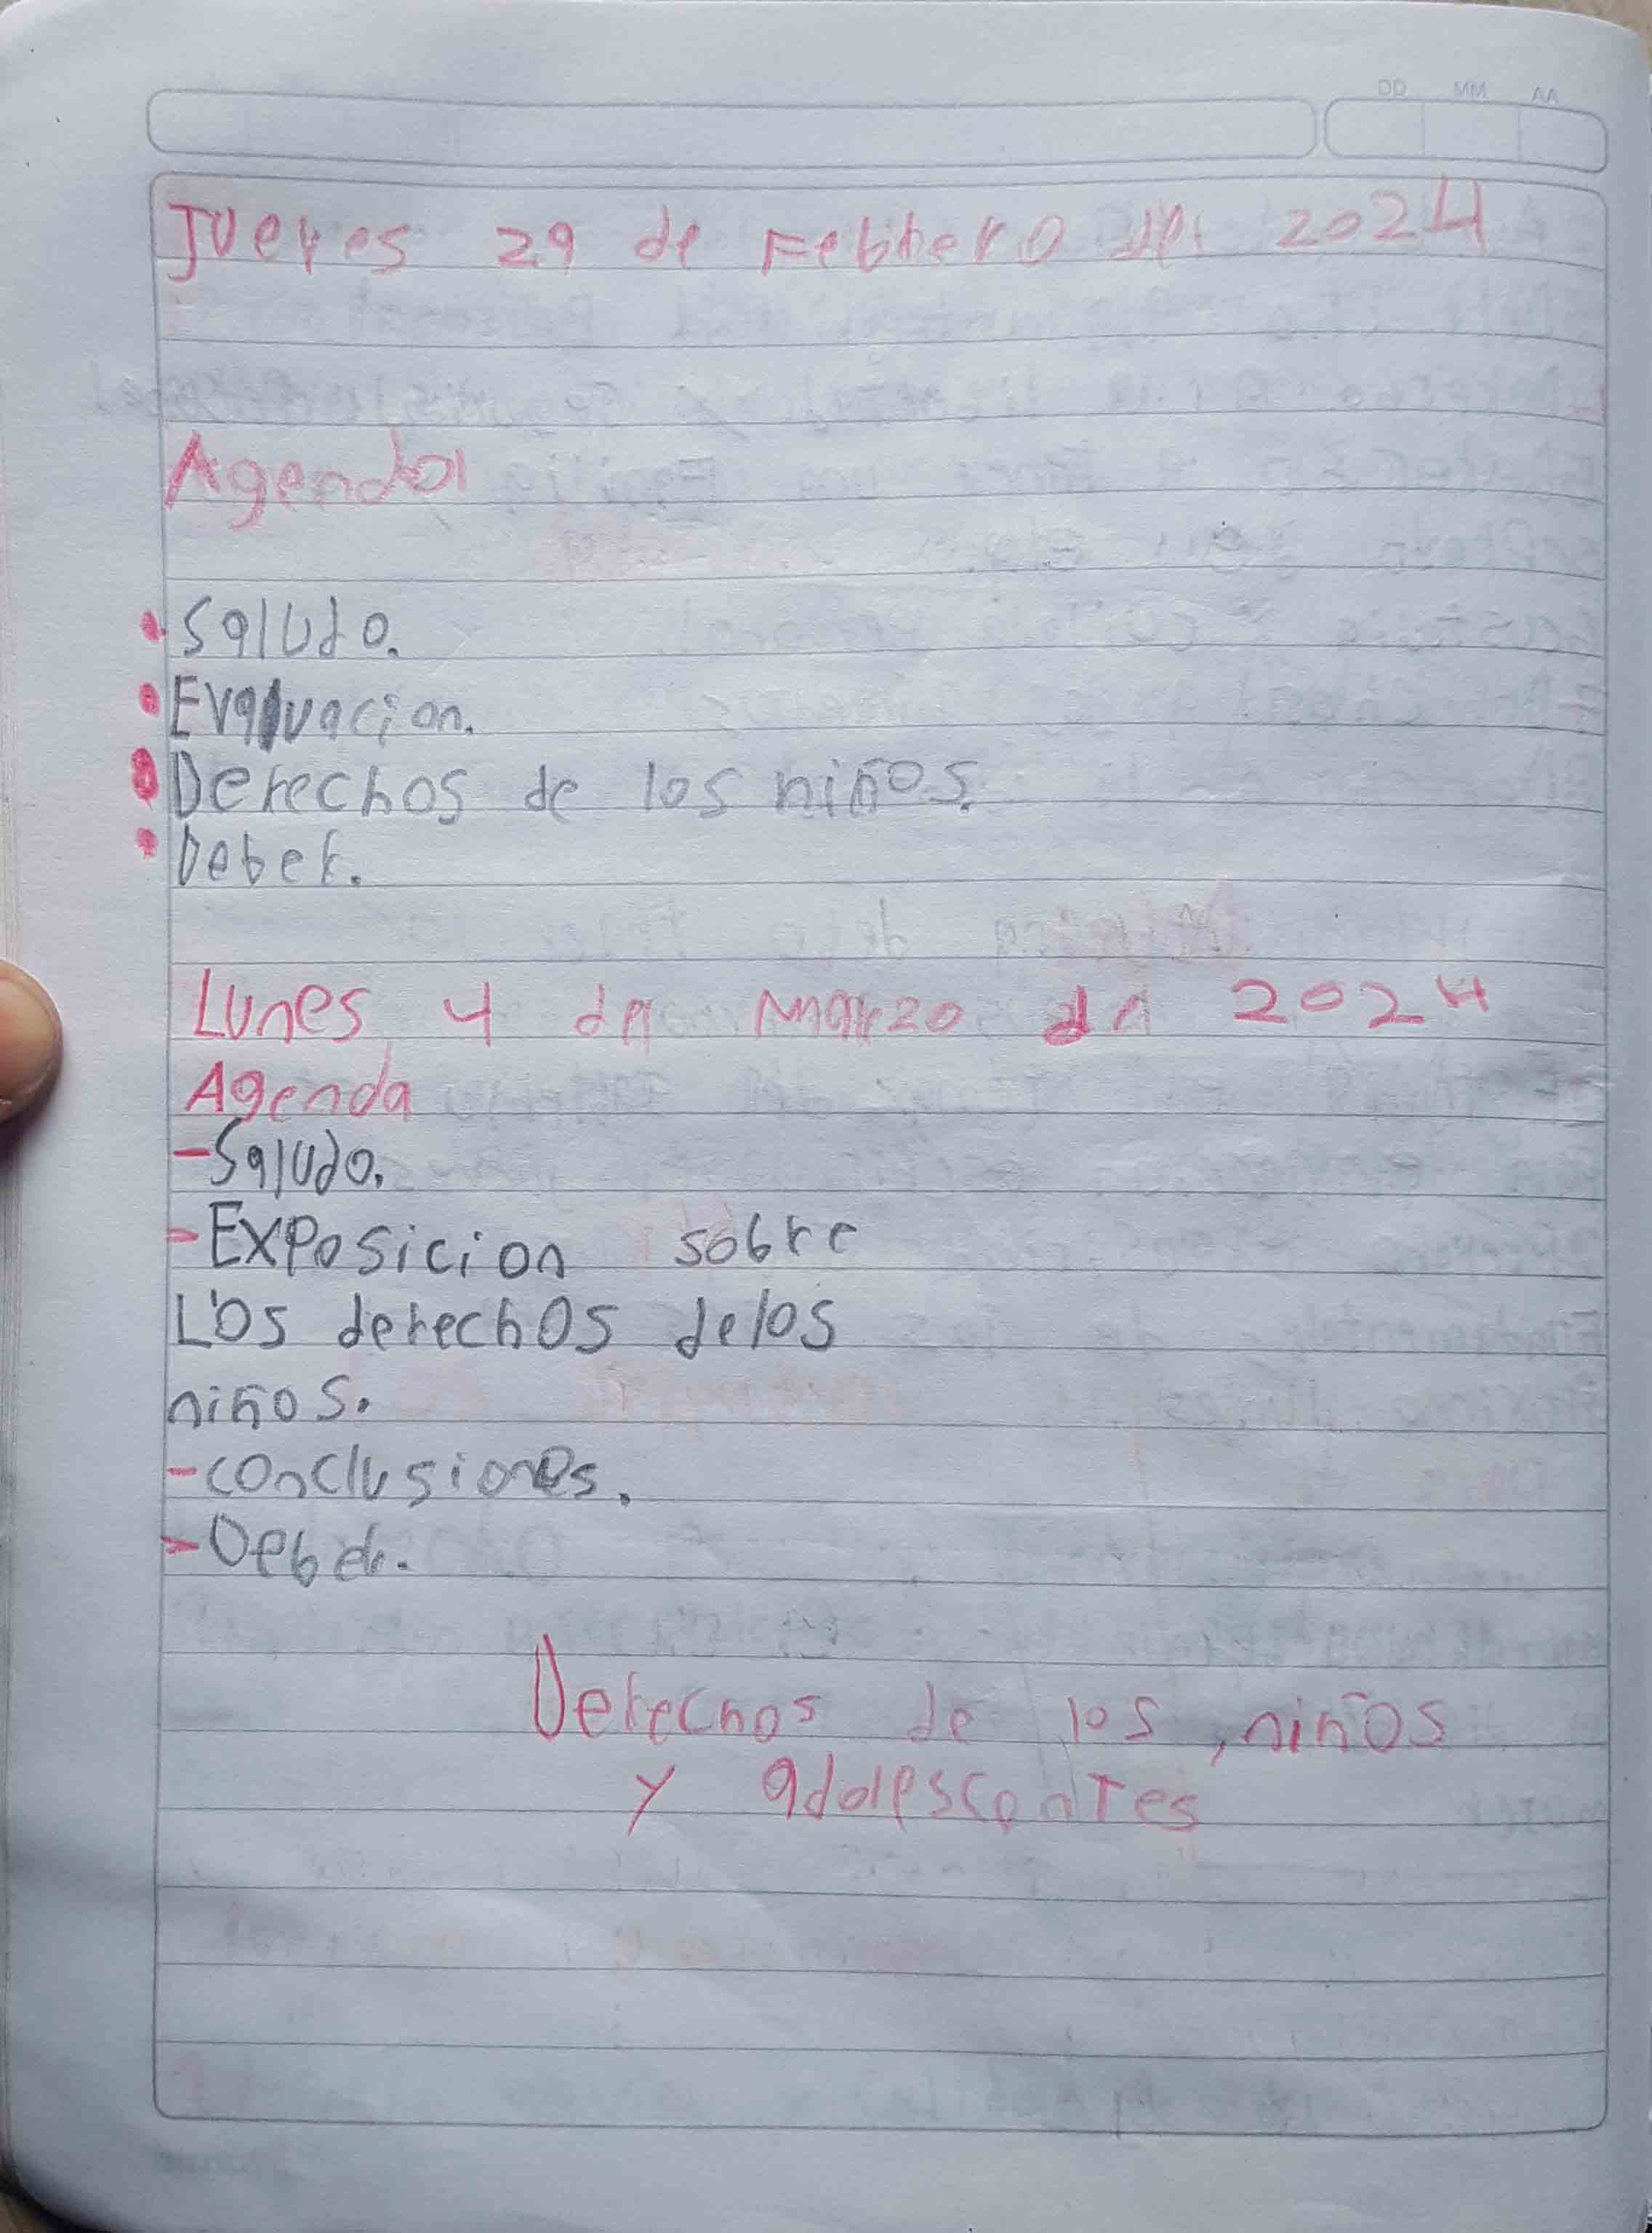 DD MM AA
Jueves 29 de Febrero del 2024
Agenda
• Saludo.
• Evaluacion.
• Derechos de los niños.
• Deber.
Lunes 4 de Marzo del 2024
Agenda
- Saludo.
- Exposicion sobre
Los derechos delos
niños.
- conclusiones.
- Deber.
Derechos de los, niños
y adolescentes